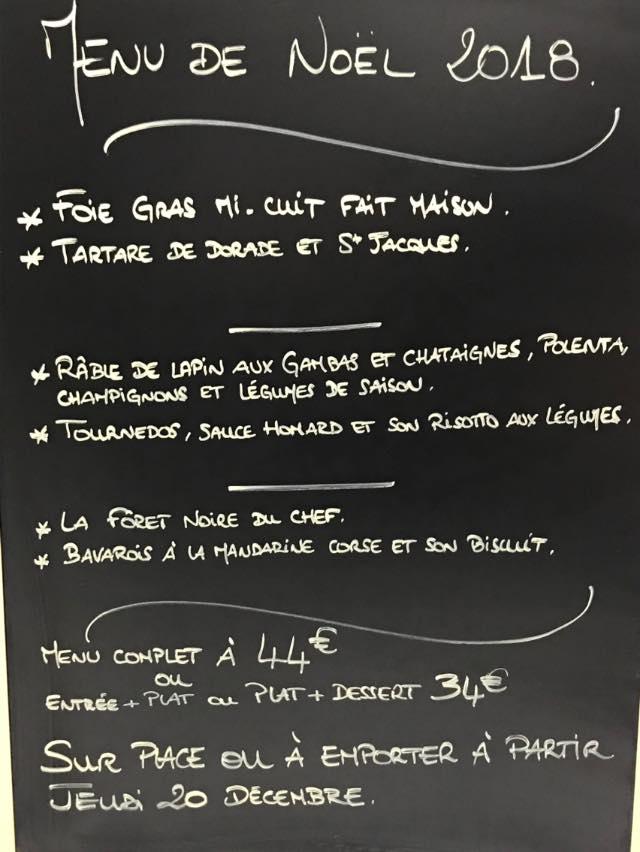 MENU DE NOËL 2018.
* FOIE GRAS MI-CUIT FAIT MAISON.
* TARTARE DE DORADE ET St JACQUES.
* RÂBLE DE LAPIN AUX GAMBAS ET CHATAIGNES, POLENTA,
CHAMPIGNONS ET LÉGUMES DE SAISON.
* TOURNEDOS, SAUCE HOMARD ET SON RISOTTO AUX LÉGUMES.
* LA FÔRET NOIRE DU CHEF.
* BAVAROIS À LA MANDARINE CORSE ET SON BISCUIT.
MENU COMPLET À 44€
OU
ENTRÉE + PLAT OU PLAT + DESSERT 34€
SUR PLACE OU À EMPORTER À PARTIR
JEUDI 20 DÉCEMBRE.